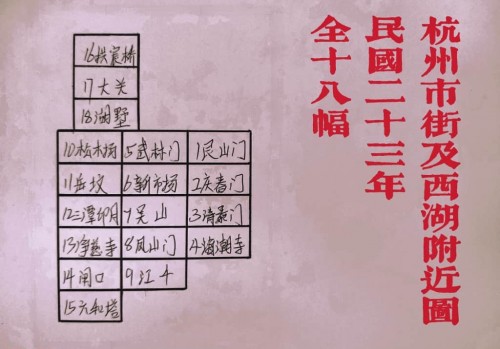 杭州市街及西湖附近圖
民國二十三年
全十八幅
16拱宸桥
17大关
18湖墅
10松木场 5武林门 1艮山门
11岳坟 6新市场 2庆春门
12三潭印月 7吴山 3清泰门
13净慈寺 8凤山门 4海潮寺
14闸口 9江干
15六和塔